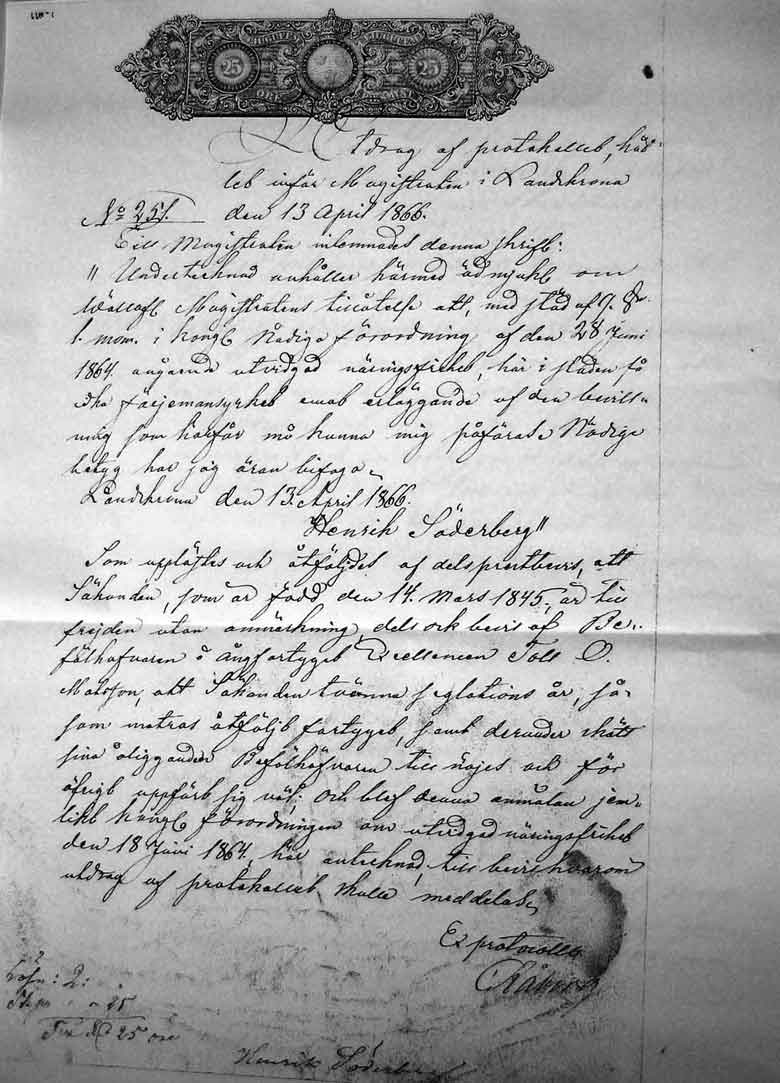 25 25
Utdrag af protokollet, håll-
let inför Magistraten i Landskrona
No 251. den 13 April 1866.
Till Magistraten inlemnades denna skrift:
"Undertecknad anhåller härmed ödmjukt om
Wällofl Magistratens tillåtelse att, med stöd af 9. §
1. mom. i Kongl Nådiga förordning af den 28 Juni
1864 angående utvidgad näringsfrihet, här i staden, få
idka färjemansyrket emot erläggande af den bevill-
ning som härför må kunna mig påföras. Nödige
betyg har jag äran bifoga.
Landskrona den 13. April 1866.
Henrik Söderberg"
Som upplästes och åtföljdes af dels prestbevis, att
Sökanden, som är född den 14. Mars 1845, är till
frejden utan anmärkning, dels ock bevis af Be-
fälhafvaren å ångfartyget Excellencen Toll O.
Matsson, att Sökanden tvänne seglations år, så-
som matros åtföljt fartyget, samt derunder skött
sina åligganden Befälhafvaren till nöjes och för
öfrigt uppfört sig väl; och blef denna anmälan jem-
likt Kongl förordningen om utvidgad näringsfrihet
den 18 Juni 1864, här antecknad, till bevis hvarom
utdrag af protokollet skulle meddelas.
Ex protocollo
Lösn: 2:
25
25 öre
Henrik Söderberg